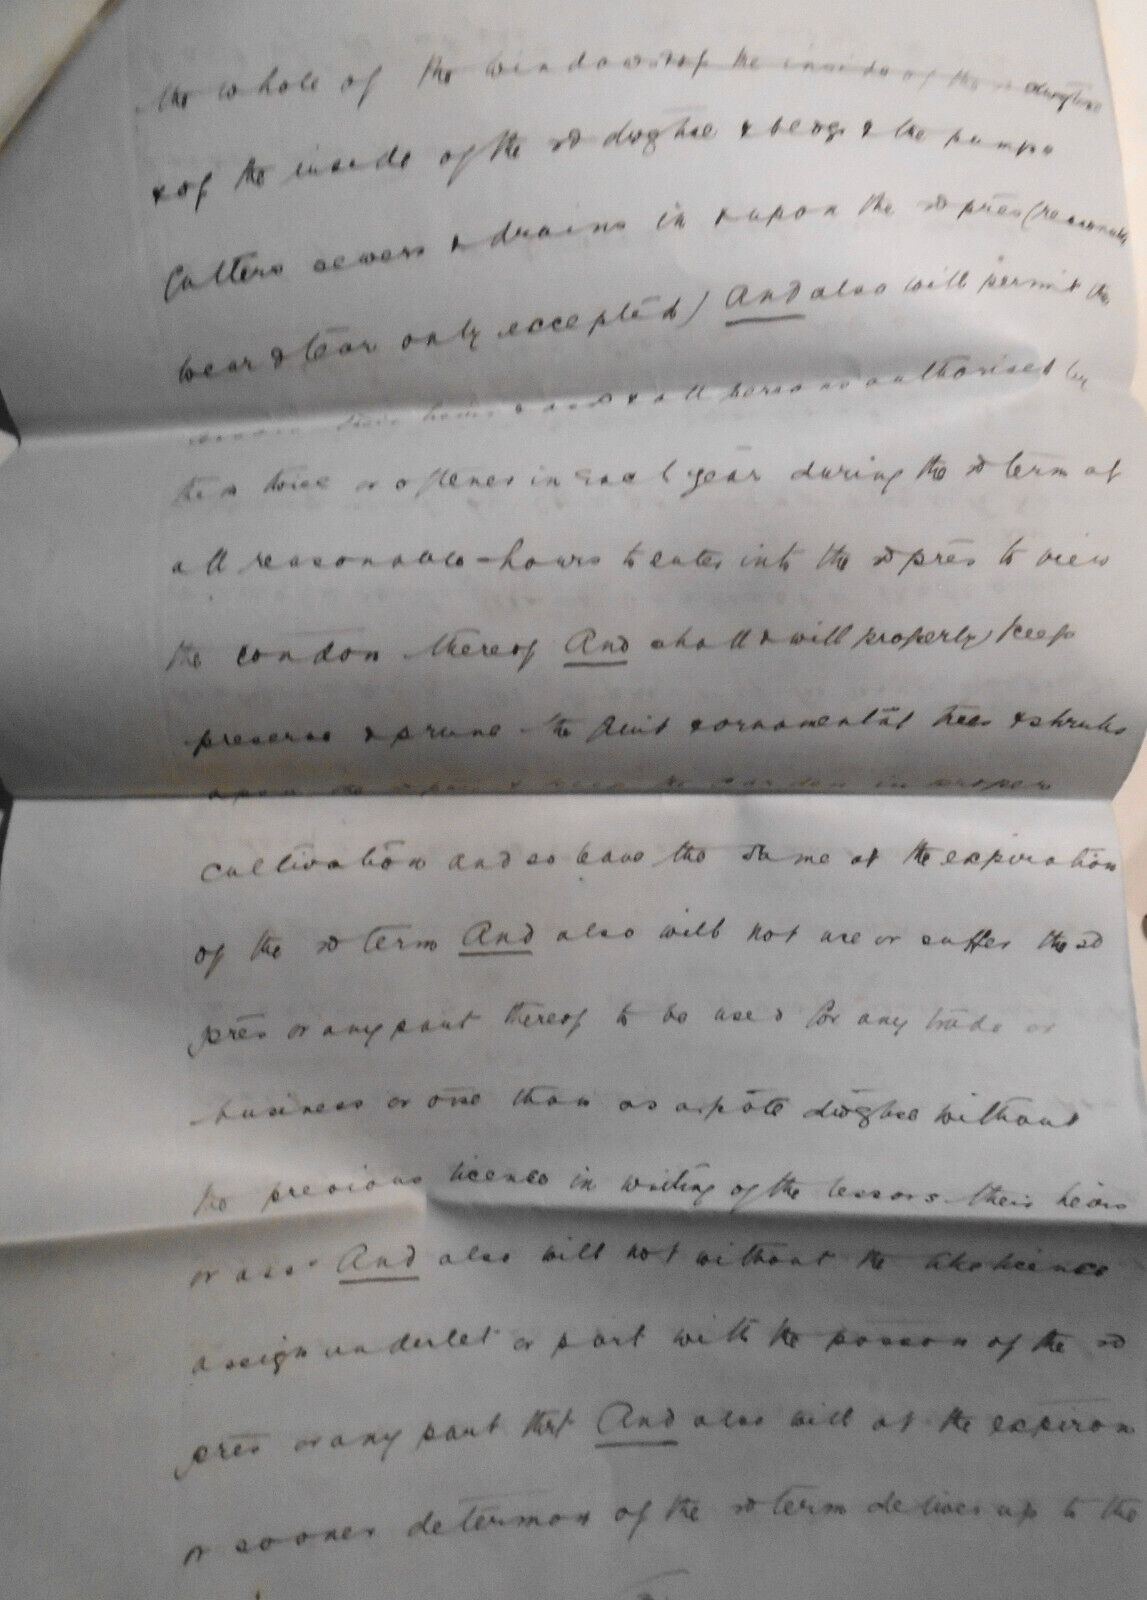 the whole of the windows & of the inside of the sd dwghse
& of the inside of the sd dwghse & bldgs & the pumps
Gutters sewers & drains in & upon the sd pres (reasonable
wear & tear only excepted) And also will permit the
their heirs & ass & all persons authorised by
them twice or oftener in each year during the sd term at
all reasonable hours to enter into the sd pres to view
the condon thereof And shall & will properly keep
preserve & prune the fruit & ornamental trees & shrubs
upon the sd pres & keep the Garden in proper
cultivation and so leave the same at the expiration
of the sd term And also will not use or suffer the sd
pres or any part thereof to be used for any trade or
business or orse than as a pote dwghse without
the previous license in writing of the lessors their heirs
or ass And also will not without the like license
assign underlet or part with the posson of the sd
pres or any part thrf And also will at the expiron
or sooner determon of the sd term deliver up to the